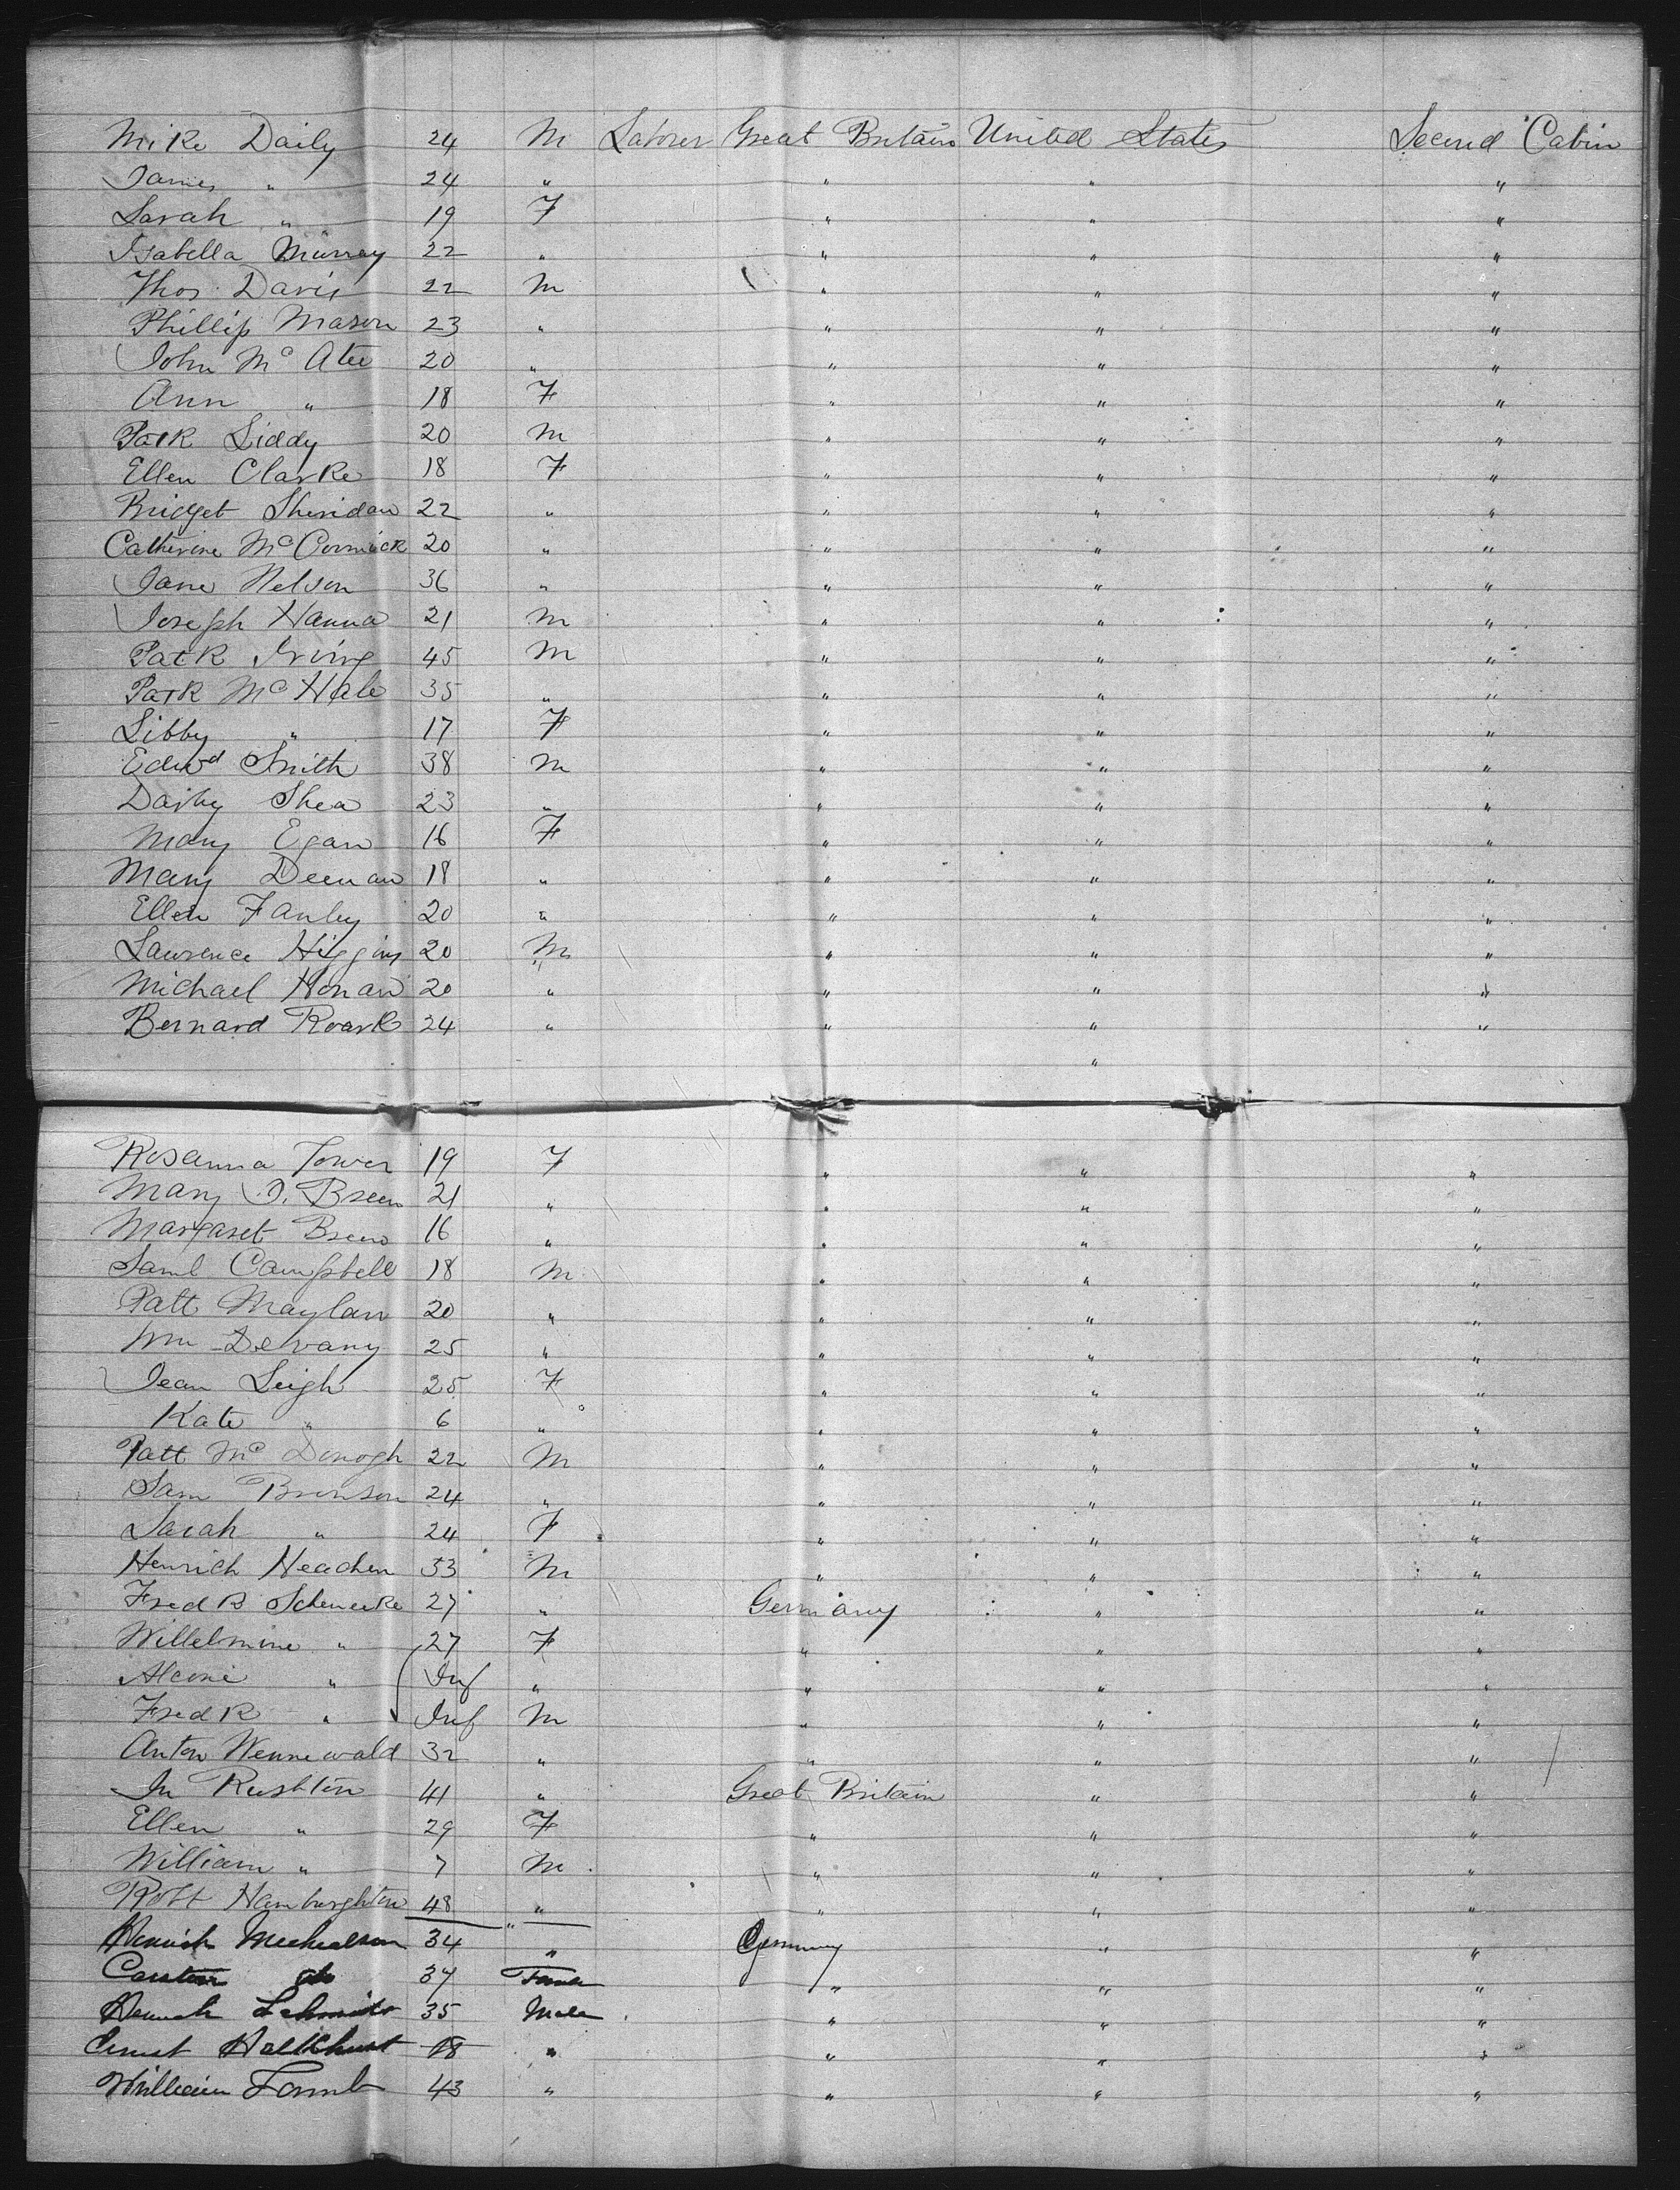 Mike Daily 24 M Laborer Great Britain United States Second Cabin
James " 24 " " " "
Sarah " 19 F " " "
Isabella Murray 22 " " " "
Thos. Davis 22 M " " "
Phillip Mason 23 " " " "
John Mc Atee 20 " " " "
Ann " 18 F " " "
Patk Liddy 20 M " " "
Ellen Clarke 18 F " " "
Bridget Sheridan 22 " " " "
Catherine McCormick 20 " " " "
Jane Nelson 36 " " " "
Joseph Hanna 21 M " " "
Patk Irving 45 M " " "
Patk McHale 35 " " " "
Libby " 17 F " " "
Edwd Smith 38 M " " "
Darby Shea 23 " " " "
Mary Egan 16 F " " "
Mary Deenan 18 " " " "
Ellen Fanley 20 " " " "
Lawrence Higgins 20 M " " "
Michael Honan 20 " " " "
Bernard Roark 24 " " " "
"
Rosanna Tower 19 F " " "
Mary J. Breen 21 " " " "
Margaret Breen 16 " " " "
Saml Campbell 18 M " " "
Patt Maylan 20 " " " "
Wm Delvany 25 " " " "
Jean Leigh 25 F " " "
Kate " 6 " " " "
Patt McDonogh 22 M " " "
Sam Brunson 24 " " " "
Sarah " 24 F " " "
Henrich Heachen 33 M " " "
Fredk Scheneeke 27 " Germany " "
Willelmine " 27 F " " "
" Inf " " " "
Fredk " Inf M " " "
Anton Wennewald 32 " " " "
Jn Rushton 41 " Great Britain " "
Ellen " 29 F " " "
William " 7 M " " "
Robt Hamburghton 48 " " " "
Henrich Mechealson 34 " Germany " "
do 37 " " "
Schmidt 35 Male " " "
Ernst 18 " " " "
William Lamb 43 " " " "